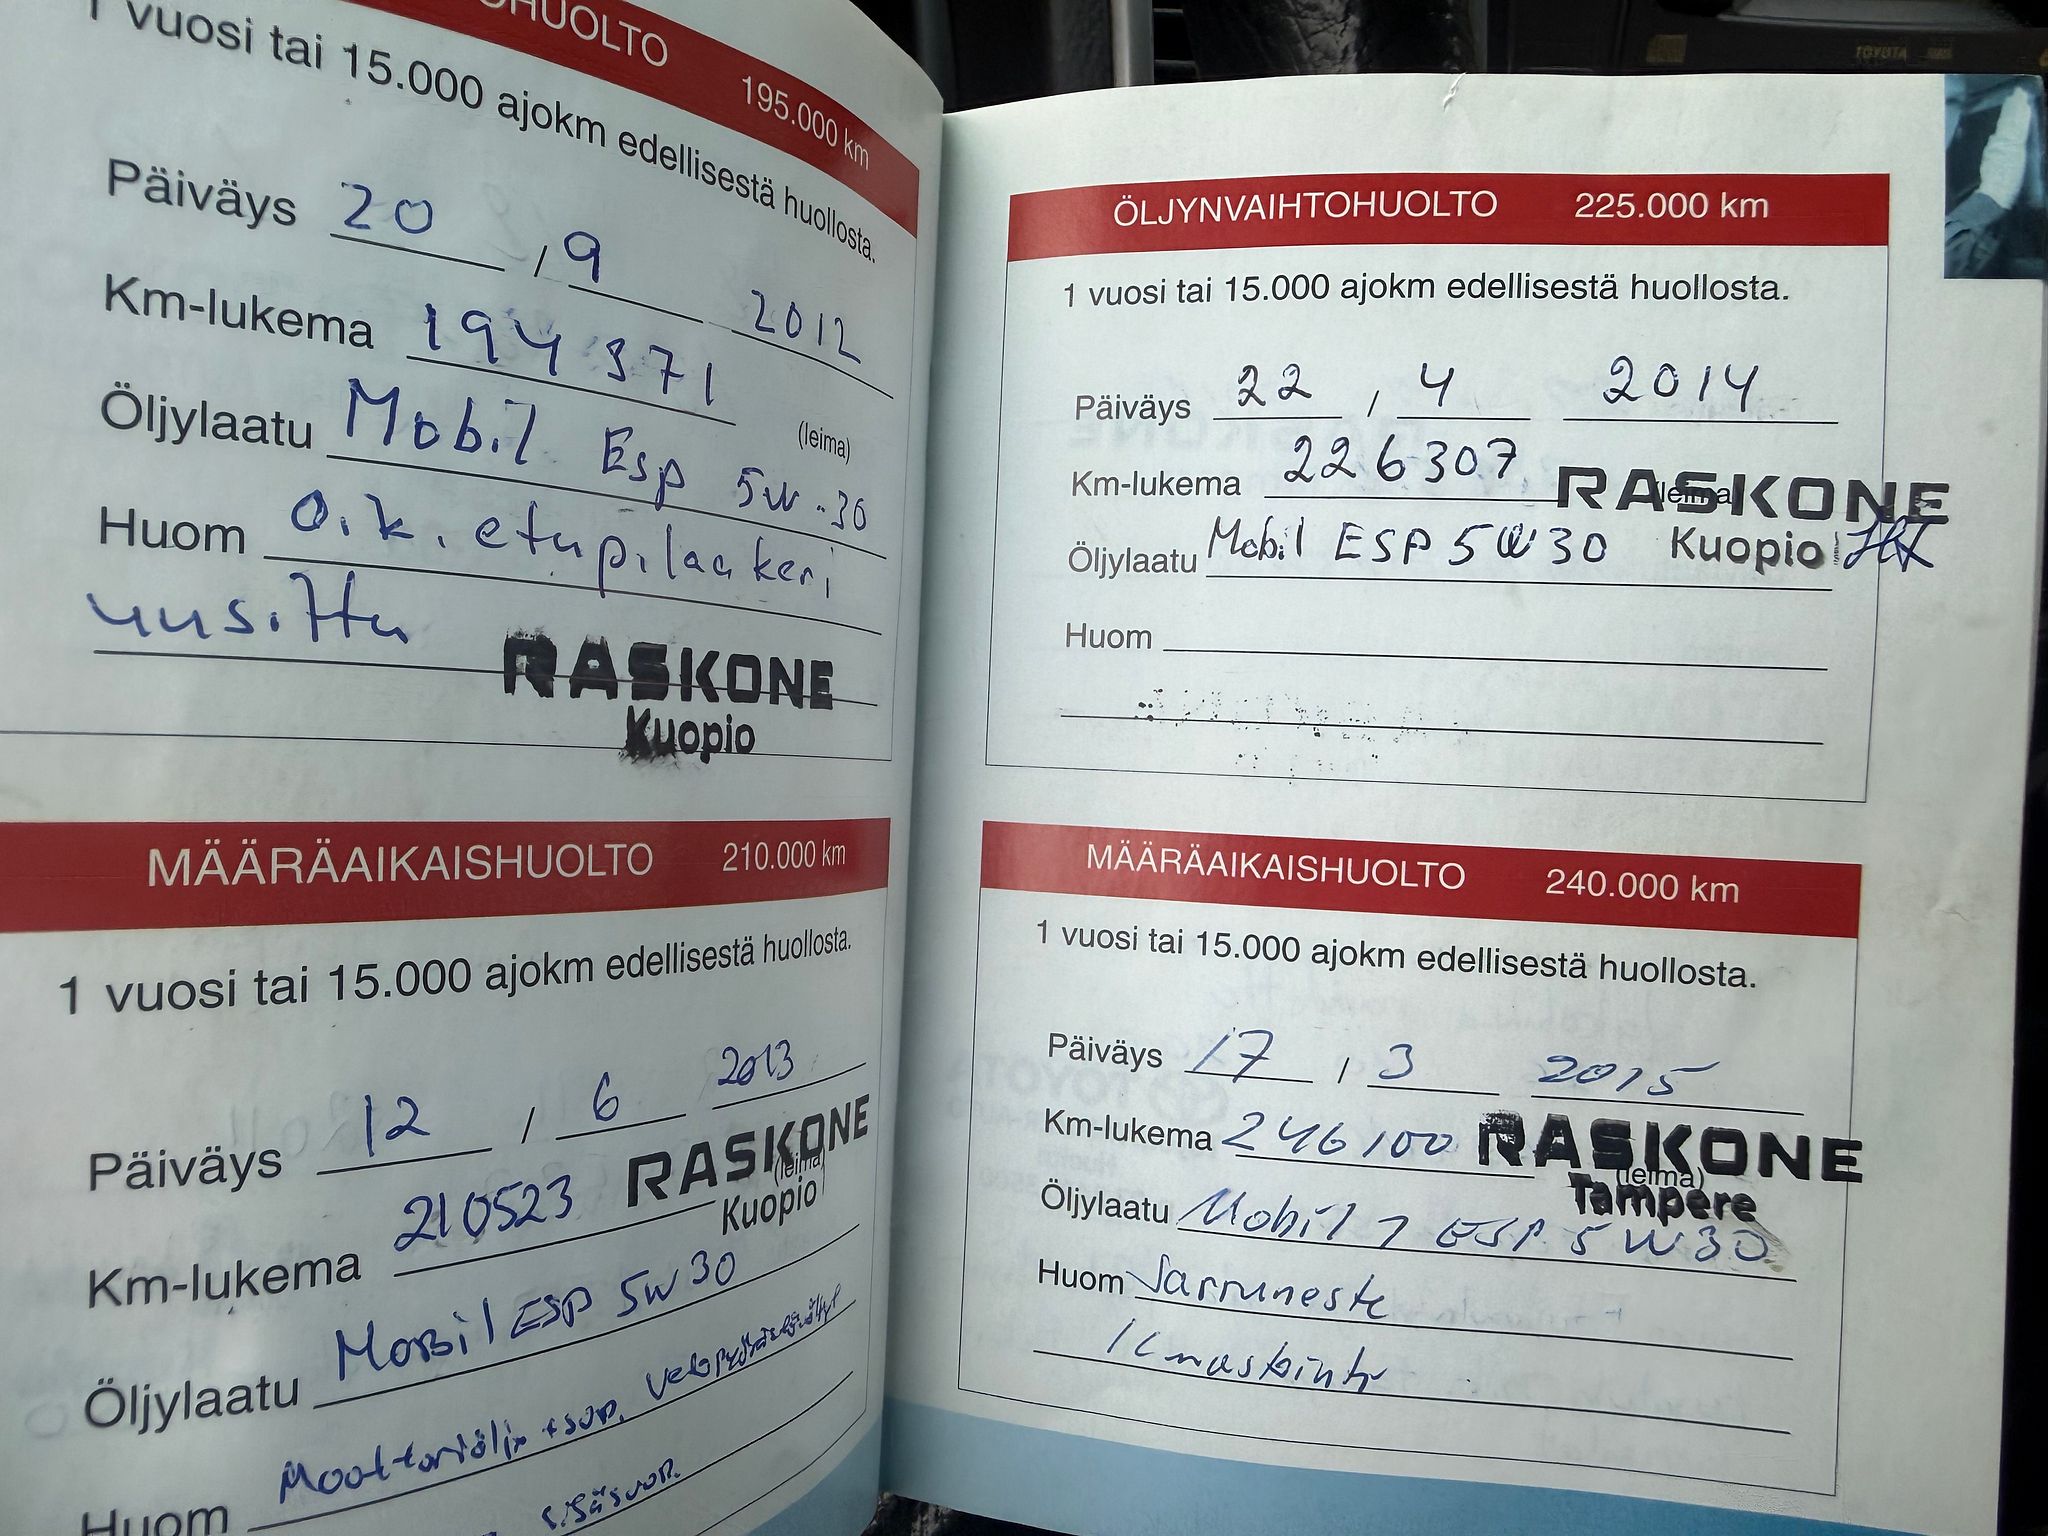 HUOLTO 195.000 km
1 vuosi tai 15.000 ajokm edellisestä huollosta.
Päiväys 20 / 9 2012
Km-lukema 194 371
(leima)
Öljylaatu Mobil Esp 5W-30
Huom O.k. etupilaakeri
uusittu
RASKONE
Kuopio
MÄÄRÄAIKAISHUOLTO 210.000 km
1 vuosi tai 15.000 ajokm edellisestä huollosta.
Päiväys 12 / 6 2013
Km-lukema 210523
RASKONE
(leima)
Kuopio
Öljylaatu Mobil ESP 5W30
Huom Moottoriöljy + suod.
sisäsuod.
ÖLJYNVAIHTOHUOLTO 225.000 km
1 vuosi tai 15.000 ajokm edellisestä huollosta.
Päiväys 22 / 4 2014
Km-lukema 226307
(leima)
RASKONE
Öljylaatu Mobil ESP 5W30
Kuopio
Huom
MÄÄRÄAIKAISHUOLTO 240.000 km
1 vuosi tai 15.000 ajokm edellisestä huollosta.
Päiväys 17 / 3 2015
Km-lukema 246100
RASKONE
(leima)
Tampere
Öljylaatu Mobil 1 ESP 5W30
Huom Jarruneste
TOYOTA